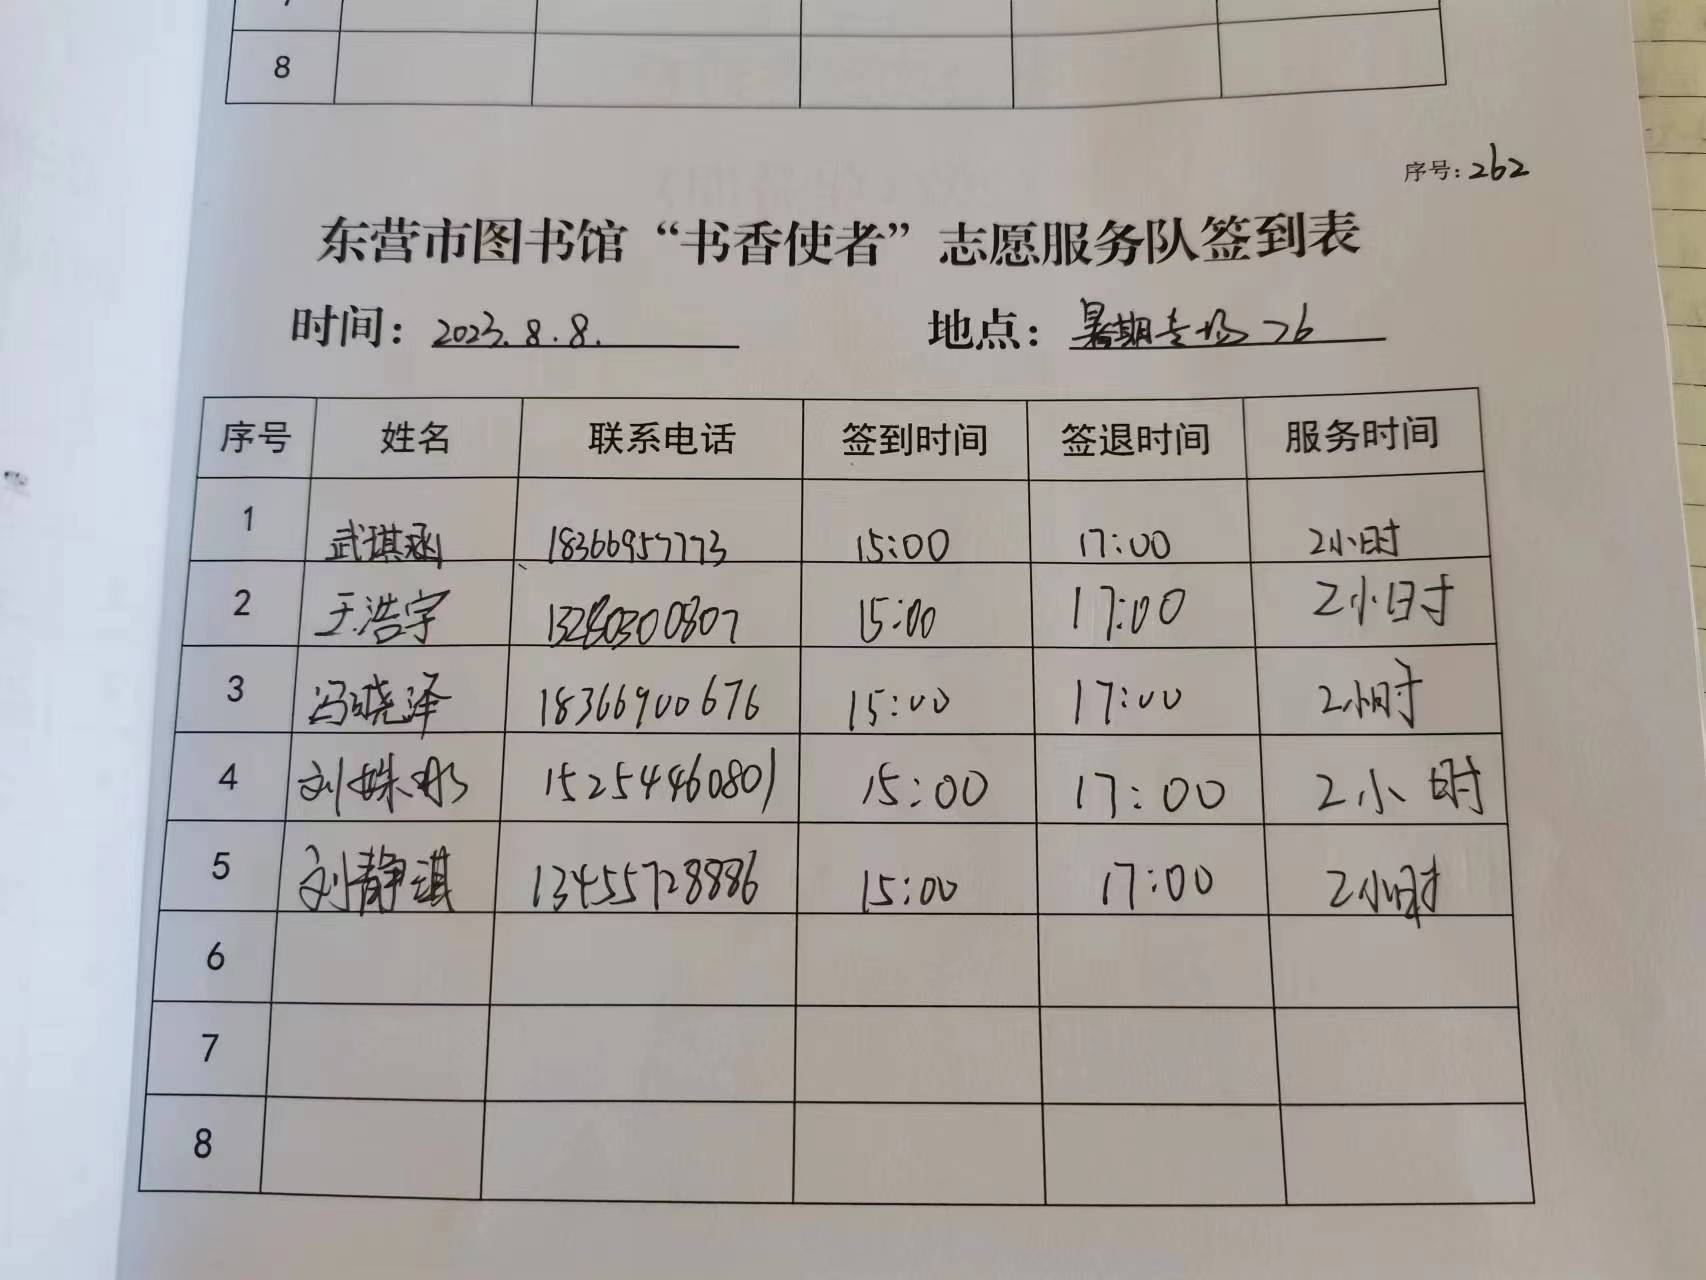 8
序号：262
东营市图书馆“书香使者”志愿服务队签到表
时间：2023.8.8. 地点：暑期专场76
序号 姓名 联系电话 签到时间 签退时间 服务时间
1 武琪涵 18366957773 15:00 17:00 2小时
2 王浩宇 13280300807 15:00 17:00 2小时
3 冯晓泽 18366900676 15:00 17:00 2小时
4 刘姝彤 15254460801 15:00 17:00 2小时
5 刘静琪 13455728886 15:00 17:00 2小时
6
7
8